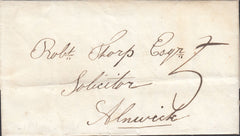 Robt. Thorp Esqr. 5
Solicitor
Alnwick